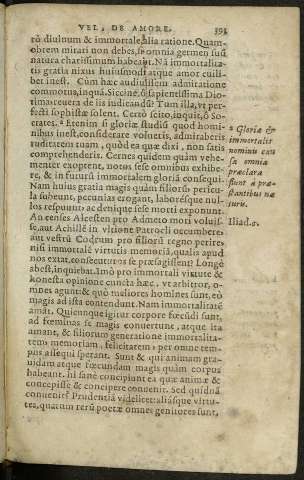 VEL, DE AMORE. 393
rũ diuinum & immortale, alia ratione. Quam-
obrem mirari non debes, si omnia germen suũ
natura charissimum habeant. Nã immortalita-
tis gratia nixus huiusmodi atque amor cuili-
bet inest. Cùm hæc audiuissem admiratione
commotus, inquã. Siccine, ô sapientissima Dio-
tima, reuera de iis iudicandũ? Tum illa, vt per-
fecti sophistæ solent. Certò scito, inquit, ô So-
crates. a Etenim si gloriæ studiũ quod homi-
nibus inest, considerare volueris, admiraberis
ruditatem tuam, quòd ea quæ dixi, non satis
comprehenderis. Cernes quidem quàm vehe-
menter exoptent, notos sese omnibus exhibe-
re, & in futurũ immortalem gloriã consequi.
Nam huius gratia magis quàm filiorũ, pericu-
la subeunt, pecunias erogant, labores que nul-
los respuunt: ac denique sese morti exponunt.
An censes Alcesten pro Admeto mori voluis-
se, aut Achillẽ in vltione Patrocli occumbere:
aut vestrũ Codrum pro filiorũ regno perire,
nisi immortalẽ virtutis memoriã, qualis apud
nos extat, consecuturos se præsagissent? Longè
abest, inquiebat. Imò pro immortali virtute &
honesta opinione cuncta hæc, vt arbitror, o-
mnes agunt: & quò meliores homines sunt, eò
magis ad ista contendunt. Nam immortalitatẽ
amãt. Quicunque igitur corpore fœcũdi sunt,
ad fœminas se magis conuertunt, atque ita
amant, & filiorum generatione immortalita-
tem, memoriam, felicitatem, per omne tem-
pus assequi sperant. Sunt & qui animam gra-
uidam atque fœcundam magis quàm corpus
habeant. hi sanè concipiunt ea quæ animæ &
concepisse & concipere conuenit. Sed quidnã
conuenit? Prudentia videlicet, aliásque virtu-
tes, quarum rerũ poetæ omnes genitores sunt,
a Gloriæ &
immortalis
nominis cau
sa omnia
præclara
fiunt à præ-
stantibus na
turis.
Iliad.